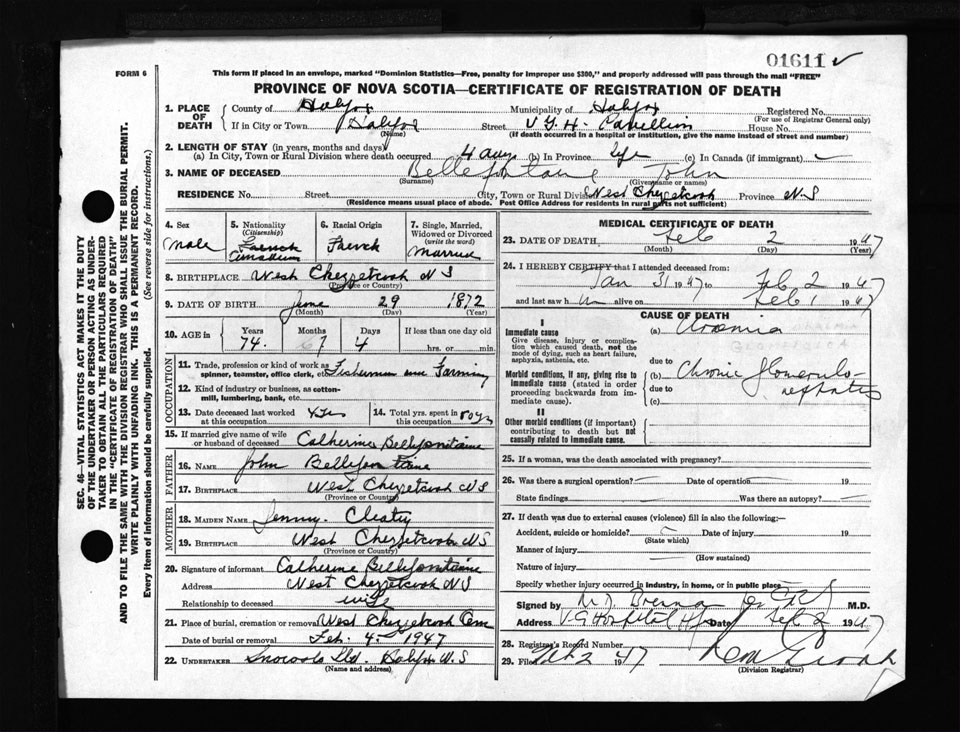 01611
FORM 6
This form if placed in an envelope, marked "Dominion Statistics—Free, penalty for improper use $300," and properly addressed will pass through the mail "FREE"
PROVINCE OF NOVA SCOTIA—CERTIFICATE OF REGISTRATION OF DEATH
1. PLACE OF DEATH County of Halifax Municipality of Halifax Registered No.
(For use of Registrar General only)
If in City or Town Halifax Street V.G.H. Pavillion House No.
(Name) (If death occurred in a hospital or institution, give the name instead of street and number)
2. LENGTH OF STAY (in years, months and days)
(a) In City, Town or Rural Division where death occurred 4 days (b) In Province Life (c) In Canada (if immigrant)
3. NAME OF DECEASED Bellefontaine John
(Surname) (Given name or names)
RESIDENCE No. Street City, Town or Rural Division West Chezzetcook Province N-S
(Residence means usual place of abode. Post Office Address for residents in rural parts not sufficient)
4. Sex Male
5. Nationality (Citizenship) French Canadian
6. Racial Origin French
7. Single, Married, Widowed or Divorced (write the word) Married
8. BIRTHPLACE West Chezzetcook N S
(Province or Country)
9. DATE OF BIRTH June 29 1872
(Month) (Day) (Year)
10. AGE in Years Months Days If less than one day old
74 7 4 hrs. or min.
OCCUPATION
11. Trade, profession or kind of work as spinner, teamster, office clerk, etc. Fisherman and Farming
12. Kind of industry or business, as cotton-mill, lumbering, bank, etc.
13. Date deceased last worked at this occupation 4 yrs
14. Total yrs. spent in this occupation 50 yrs
15. If married give name of wife or husband of deceased Catherine Bellefontaine
FATHER
16. Name John Bellefontaine
17. Birthplace West Chezzetcook N S
(Province or Country)
MOTHER
18. Maiden Name Jenny
19. Birthplace West Chezzetcook N S
(Province or Country)
20. Signature of informant Catherine Bellefontaine
Address West Chezzetcook N S
Relationship to deceased wife
21. Place of burial, cremation or removal West Chezzetcook Cem
Date of burial or removal Feb. 4 1947
22. UNDERTAKER Snows Ltd. Halifax N.S
(Name and address)
MEDICAL CERTIFICATE OF DEATH
23. DATE OF DEATH Feb 2 1947
(Month) (Day) (Year)
24. I HEREBY CERTIFY that I attended deceased from:
Jan 31 1947 to Feb 2 1947
and last saw him alive on Feb 1 1947
CAUSE OF DEATH
I
Immediate cause (a) Uraemia
Give disease, injury or complication which caused death, not the mode of dying, such as heart failure, asphyxia, asthenia, etc.
due to
Morbid conditions, if any, giving rise to immediate cause (stated in order proceeding backwards from immediate cause).
(b) Chronic Glomerulo-nephritis
due to
(c)
II
Other morbid conditions (if important) contributing to death but not causally related to immediate cause.
25. If a woman, was the death associated with pregnancy?
26. Was there a surgical operation? Date of operation 19
State findings Was there an autopsy?
27. If death was due to external causes (violence) fill in also the following:—
Accident, suicide or homicide? Date of injury 19
(State which)
Manner of injury
(How sustained)
Nature of injury
Specify whether injury occurred in industry, in home, or in public place
Signed by M.D.
Address V G Hospital Hfx Date Feb 2 1947
28. Registrar's Record Number
29. Filed Feb 2 1947
(Division Registrar)
SEC. 46—VITAL STATISTICS ACT MAKES IT THE DUTY
OF THE UNDERTAKER OR PERSON ACTING AS UNDER-
TAKER TO OBTAIN ALL THE PARTICULARS REQUIRED
IN THE "CERTIFICATE OF REGISTRATION OF DEATH"
AND TO FILE THE SAME WITH THE DIVISION REGISTRAR WHO SHALL ISSUE THE BURIAL PERMIT.
WRITE PLAINLY WITH UNFADING INK. THIS IS A PERMANENT RECORD.
Every item of information should be carefully supplied. (See reverse side for instructions.)